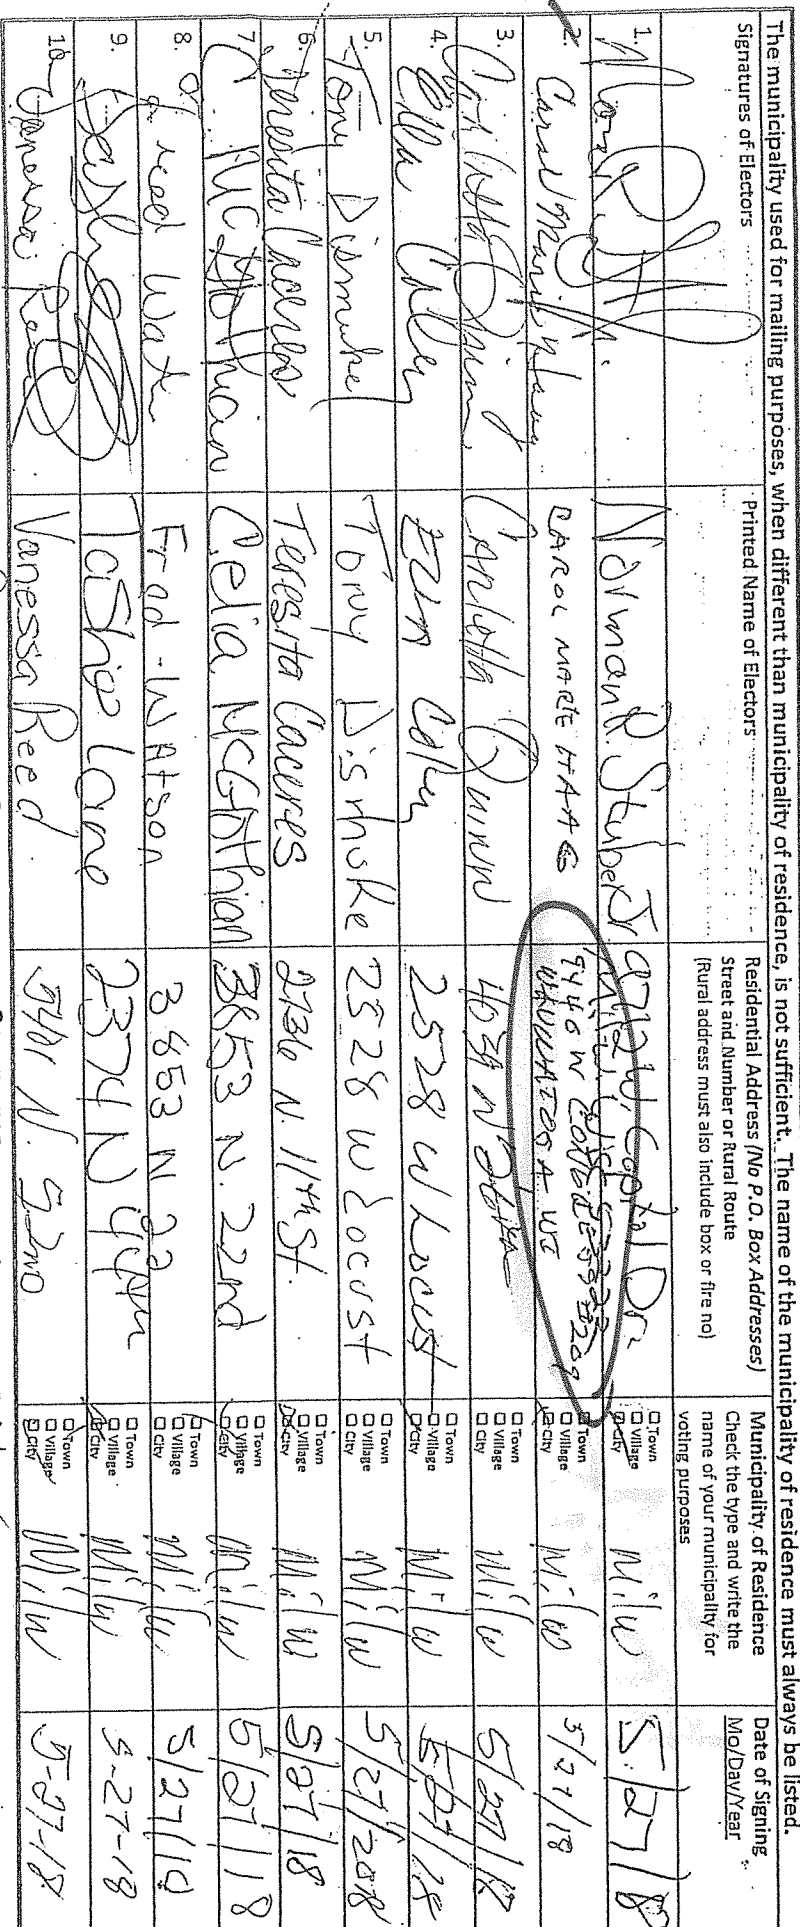 The municipality used for mailing purposes, when different than municipality of residence, is not sufficient. The name of the municipality of residence must always be listed.
Signatures of Electors
Printed Name of Electors
Residential Address (No P.O. Box Addresses)
Street and Number or Rural Route
(Rural address must also include box or fire no)
Municipality of Residence
Check the type and write the
name of your municipality for
voting purposes
Date of Signing
Mo/Day/Year
1. Norman R. Stuber Jr 9712 W. Capital Dr. Town Village City Milw 5/27/18
2. Carol Marie Haag CAROL MARIE HAAG 9446 W CONGRESS #209 WAUWATOSA WI Town Village City Milw 5/27/18
3. Carletta Quinn Carletta Quinn 4039 N Town Village City Milw 5/27/18
4. Ella Coley Ella Coley 2528 W Locust Town Village City Milw
5. Tony Dismuke Tony Dismuke 2528 W Locust Town Village City Milw 5/27/2018
6. Teresita Caceres Teresita Caceres 2736 N. 11th St. Town Village City Milw 5/27/18
7. C. McGlothian Celia McGlothian 3853 N. 22nd Town Village City Milw 5/27/18
8. Fred Watson Fred-Watson 3853 N 22 Town Village City Milw
9. Tashia Lane 2374 N Town Village City Milw 5-27-18
10. Vanessa Reed Vanessa Reed N. 52ND Town Village City Milw 5-27-18